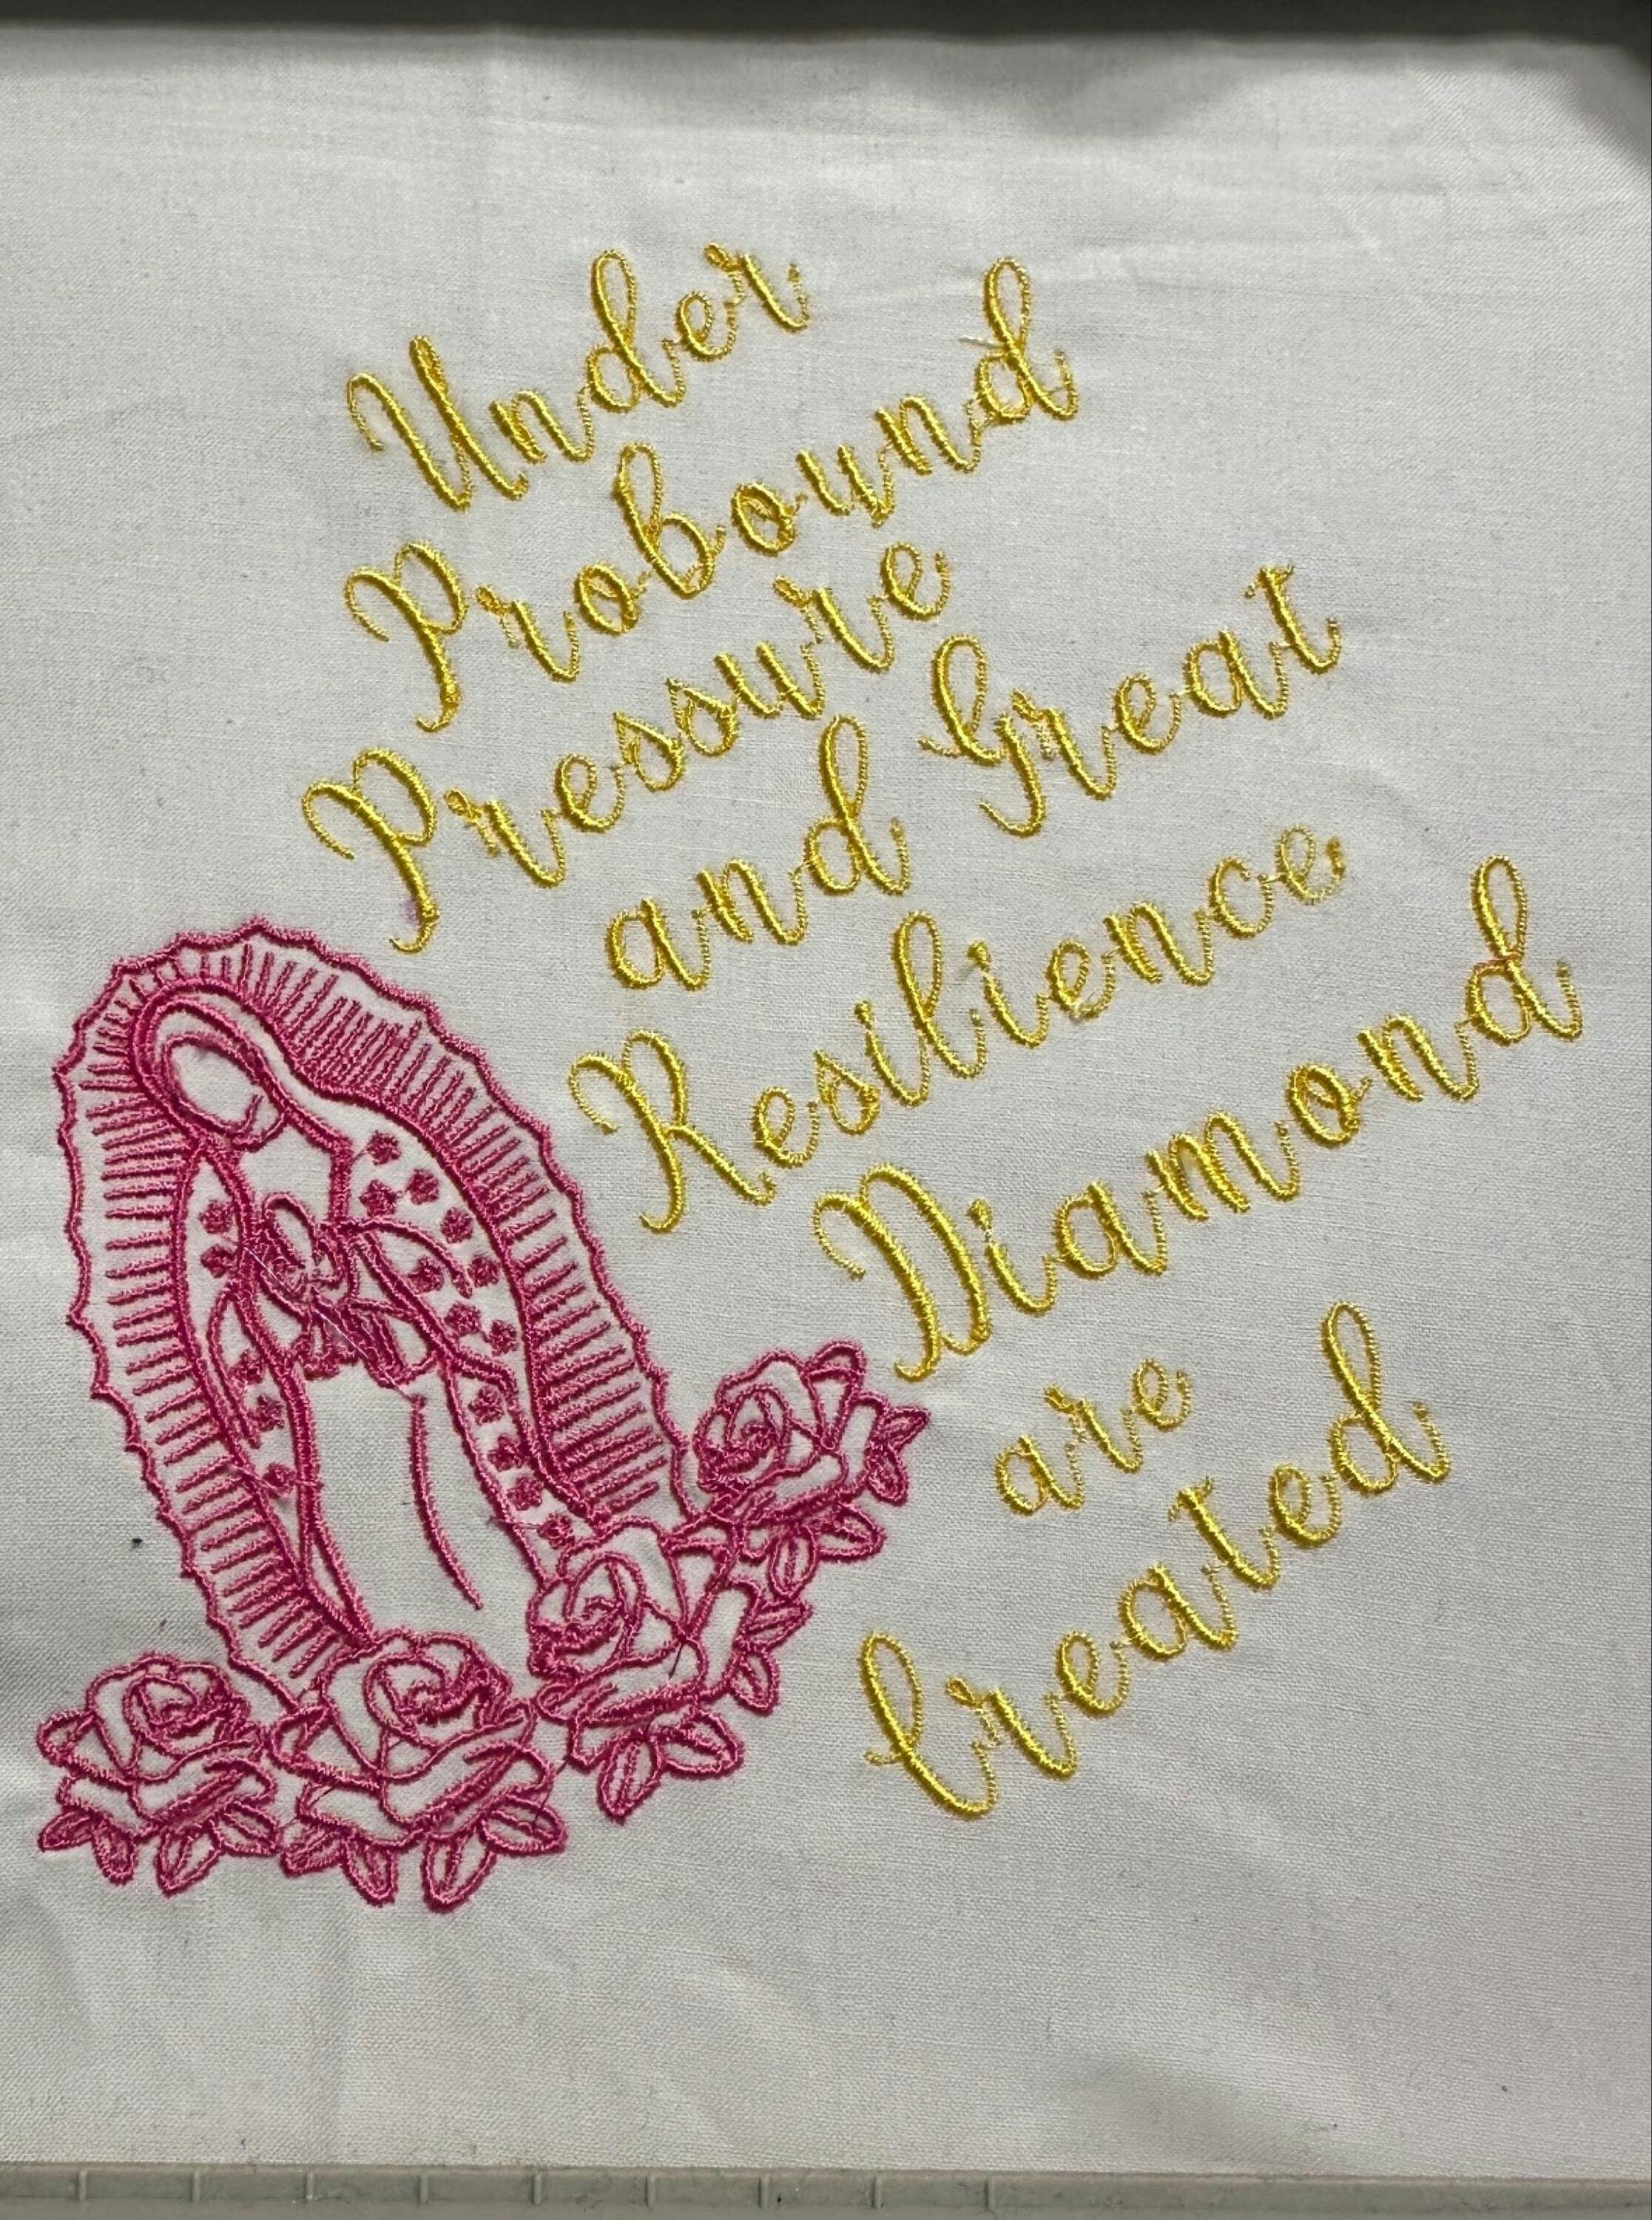 Under
Probound
Pressure
and Great
Resilience
Diamond
are
Created